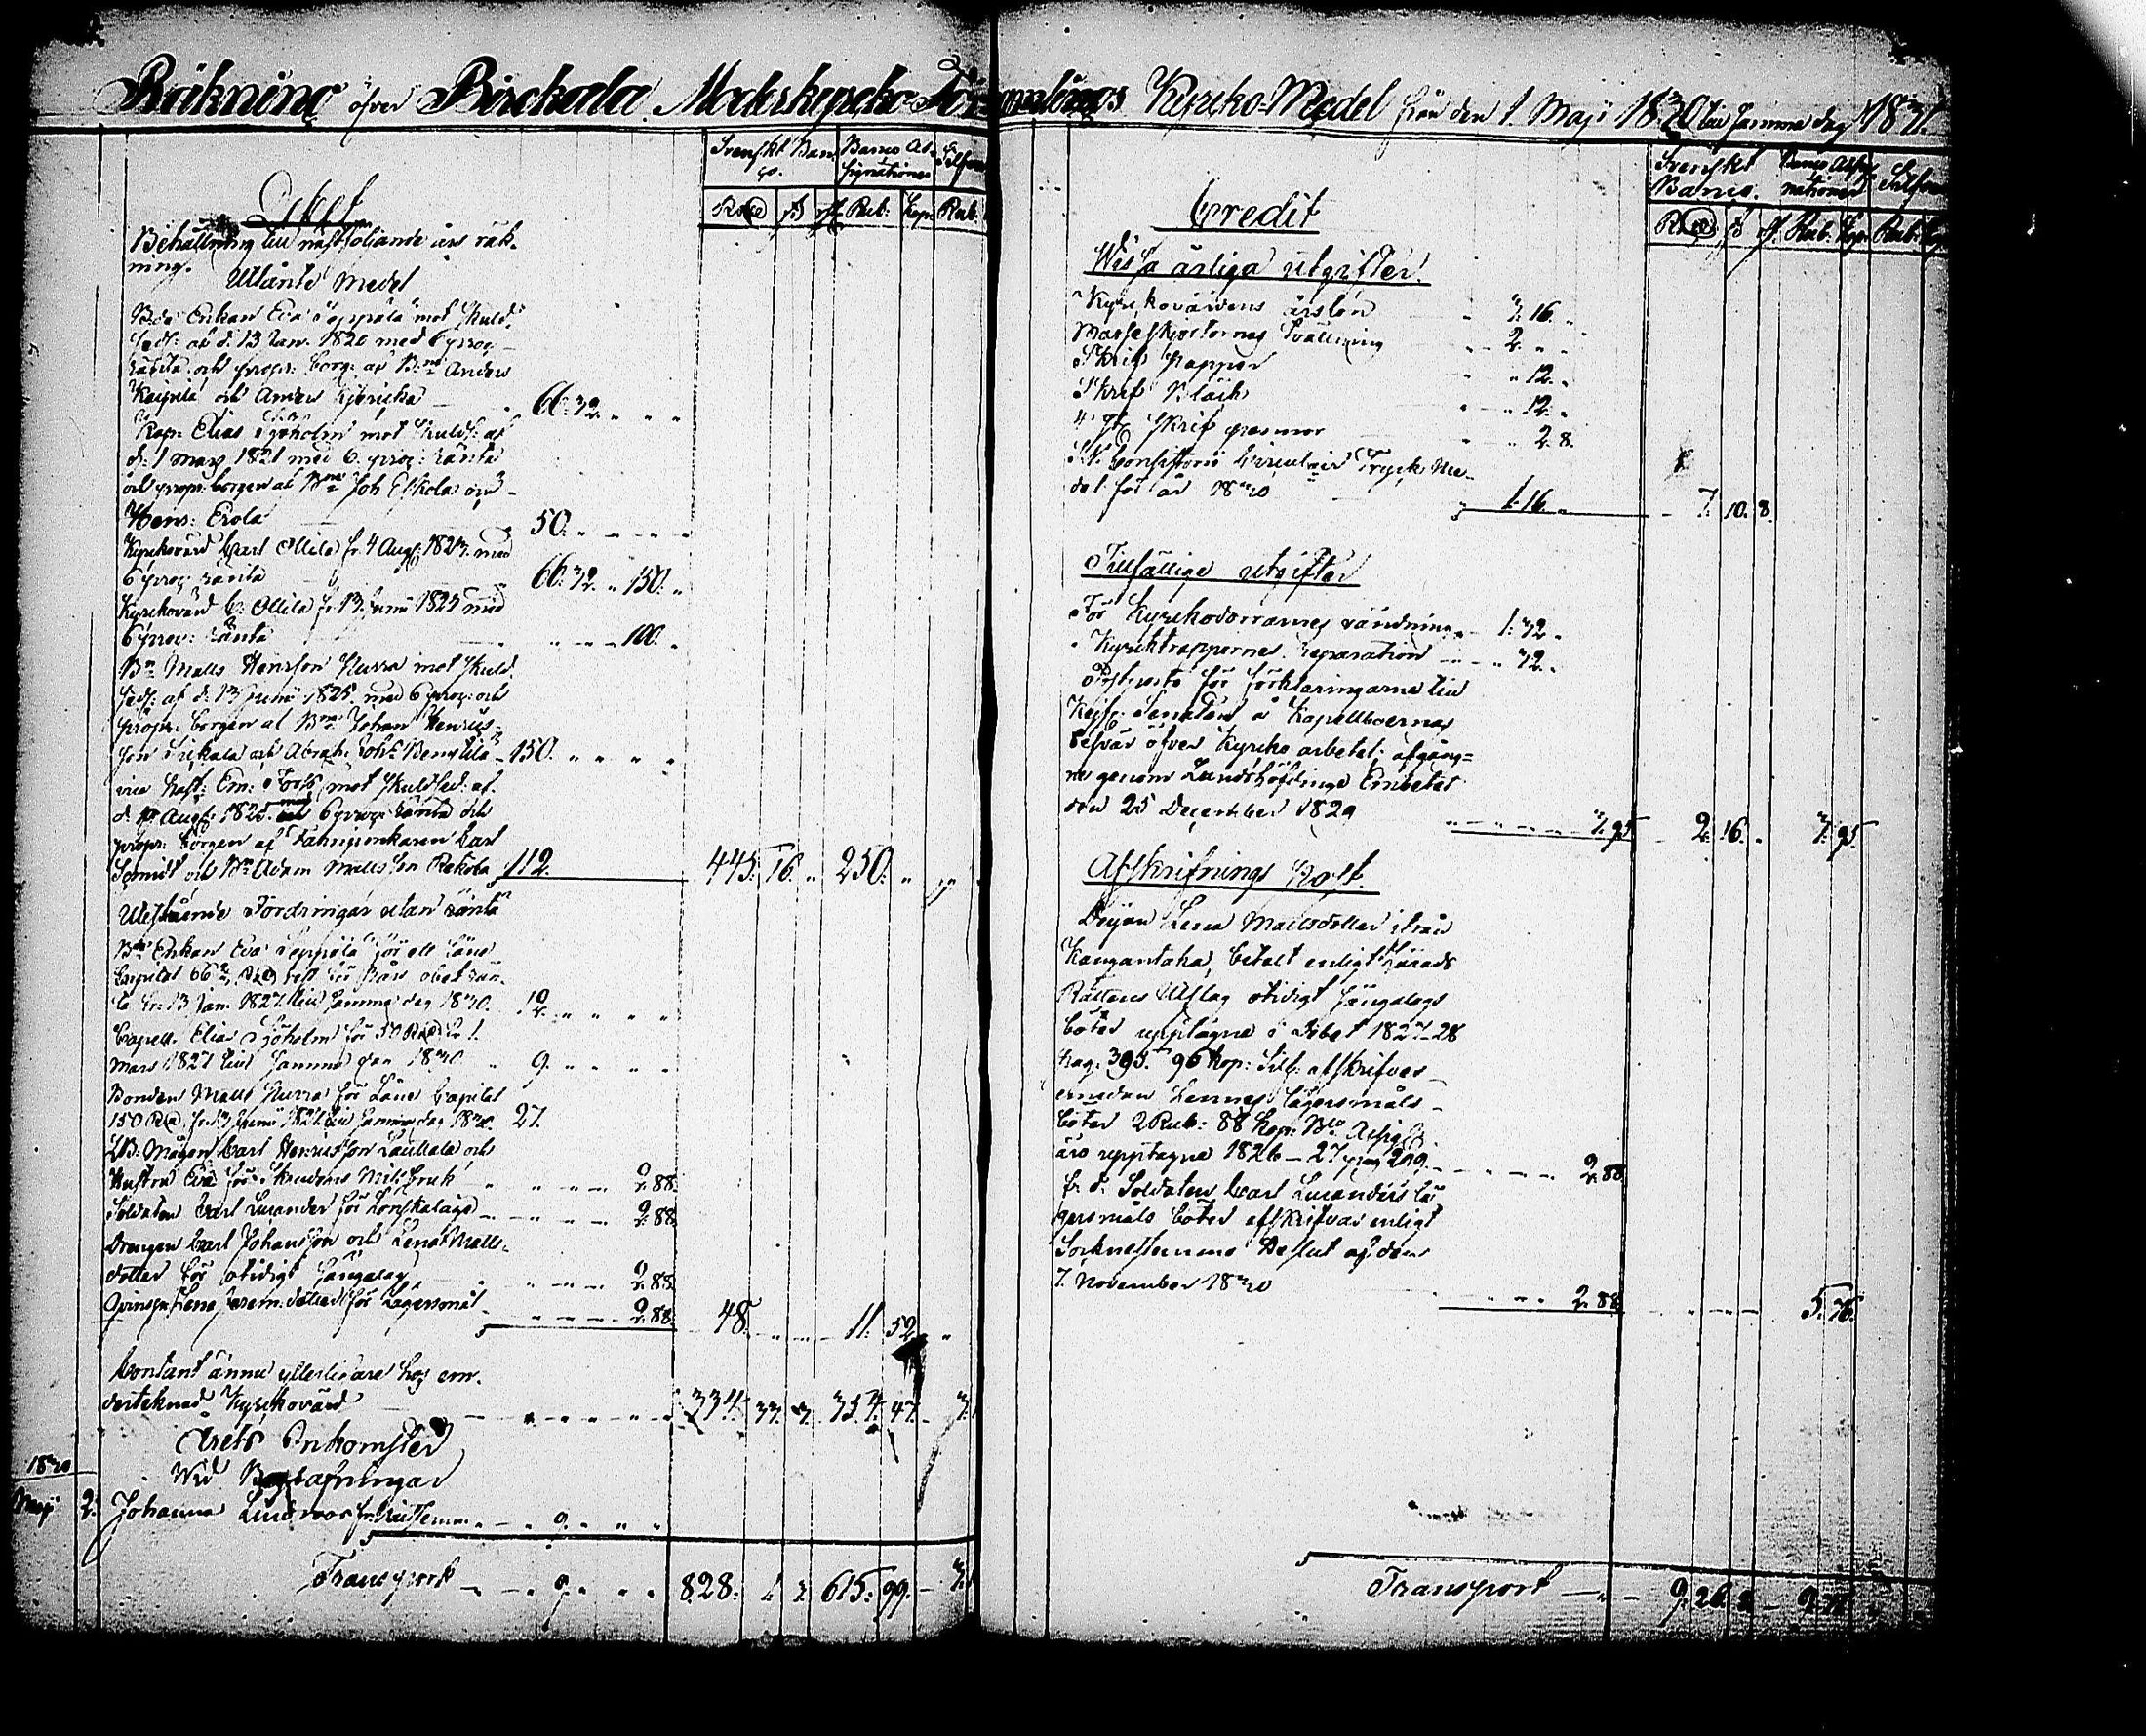 Räkning öfver Birckala Moderkyrcko Församlings Kyrcko-Medel från den 1 Maji 1830 till samma dag 1831.
Svenskt Ban
co.
Banco As-
signationer
Silfver
RD sk rst Rub: Kop: Rub:
Debet
Behållning till nästföljande års räk-
ning.
Utlånte Medel
Bde Enkan Eva Seppälä mot skuld-
sedl: af d: 13 Jan. 1820 med 6 proc
ränta och propr: borg: af Bn Anders
Kaipila och Anders 66:32. " " "
Kapn Elias Sjöholm mot skulds: af
d: 1 Mars 1821 med 6. proc: ränta
och propr: borgen af Bne Joh Eskola och
Henr: Erola 50. " " " "
Kyrckovärd Carl Ollila fr. 4 Aug: 1823. med
6 proc: ränta 66:32. " 150. "
Kyrckovärd C: Ollila fr. 13. Junii 1825 med
6 proc: ränta " " " 100. "
Bn Matts Hansson Hurra mot skuld-
sedl: af d: 13 Junii 1825. med 6 proc: och
propr: borgen af Bne Johan Henrics-
son Sickala och Abrah: Joh: 150. " " " "
mot skuldsed: af
d: Aug: 1825. med 6 proc: ränta och
propr: borgen af Fahnjunkaren Carl
Schmidt och Bn Adam Mattsson 112. 445. 16. " 250. " "
Utestående Fordringar utan ränta
Bde Enkan Eva Seppälä för ett låne
Capital 66
fr: 13 Jan. 1827 till samma dag 1830. 12. " " " "
Capell. Elia Sjöholm för 50 RD fr. 1.
Mars 1827 till samma dag 1830 9. " " " "
Bonden Matts Hurra för Låne Capital
150 RD fr. 13 Junii 1827 till samma dag 1830. 27.
Mågen Carl Henricsson Laulala och
Hustru Eva för 2.88.
Soldaten Carl Lucander för Lönskaläge 2.88.
Drengen Carl Johansson och Lena Matts-
dotter för otidigt sängalag 2.88.
Qvinsp: Lena Jerem: dotter för Lägersmål 2.88. 48. " " 11. 52. "
Contant ännu ytterligare hos un-
dertecknad Kyrckovärd 334. 33. 3. 354. 47. 3.
Årets Inkomster
Wid Begrafningar
1830
Maji 2. Johanna Lindroos fr. 9. " " "
Transport 9. " " " 828. 1. 3. 615. 99. 3.
Svenskt
Banco.
Banco Assig-
nationer
Silfver
RD sk rst Rub: Kop: Rub: Kop
Credit
Wissa årliga utgifter.
Kyrckovärdens årslön 3. 16. "
Messeskjortornas tvättning 2. " "
Skrif Papper " 12. "
Skrif Bläck " 12. "
4 st. skrif pennor " 2. 8.
Consistorii Circulair Tryck Me-
del för år 1830 1. 16. " 7. 10. 8.
Tillfällige utgifter
För Kyrckodörrarnes vändning 1: 32. "
" Kyrcktrappornes reparation " 32. "
Postporto för förklaringarne till
Kejs: Senaten å Kapellboernas
besvär öfver Kyrcko arbetet, afgång-
ne genom Landshöfdinge Embetet
den 25 December 1829 3. 95 2. 16. " 3. 95.
Afskrifnings Post.
Pigan Lena Mattsdotter ifrån
Kangantaka, betalt enligt Härads
Rättens Utslag otidigt sängalags
böter upptagne i Debet 1827-28
pag: 395. 96 kop: Silf: afskrifves
Lennes lägersmåls
böter 2 Rub: 88 Kop: Bco Assig:
äro upptagne 1826-27 pag 299. 2. 88.
fr. d. Soldaten Carl Lucanders lä-
gersmåls böter afskrifvas enligt
Sockenstemmo Beslut af den
7. November 1830 2. 88 " " " 5. 76.
Transport 9. 26. 8 9. 71